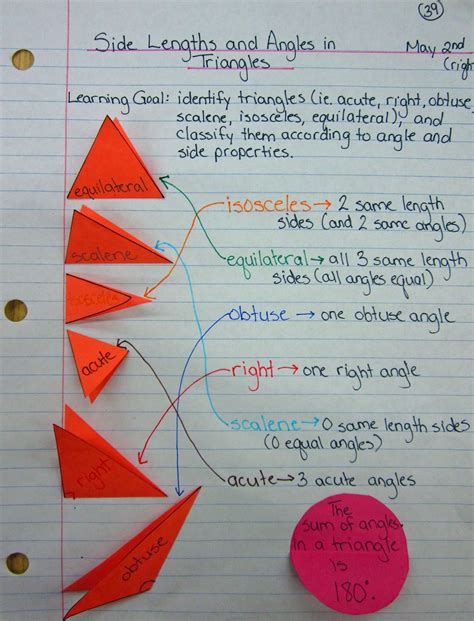 39
Side Lengths and Angles in
Triangles
May 2nd
(righ
Learning Goal: identify triangles (ie. acute, right, obtuse,
scalene, isosceles, equilateral), and
classify them according to angle and
side properties.
equilateral
isosceles → 2 same length
sides (and 2 same angles)
scalene
equilateral → all 3 same length
sides (all angles equal)
isosceles
obtuse → one obtuse angle
acute
right → one right angle
scalene → 0 same length sides
(0 equal angles)
right
acute → 3 acute angles
obtuse
The
sum of angles
in a triangle
is
180°.